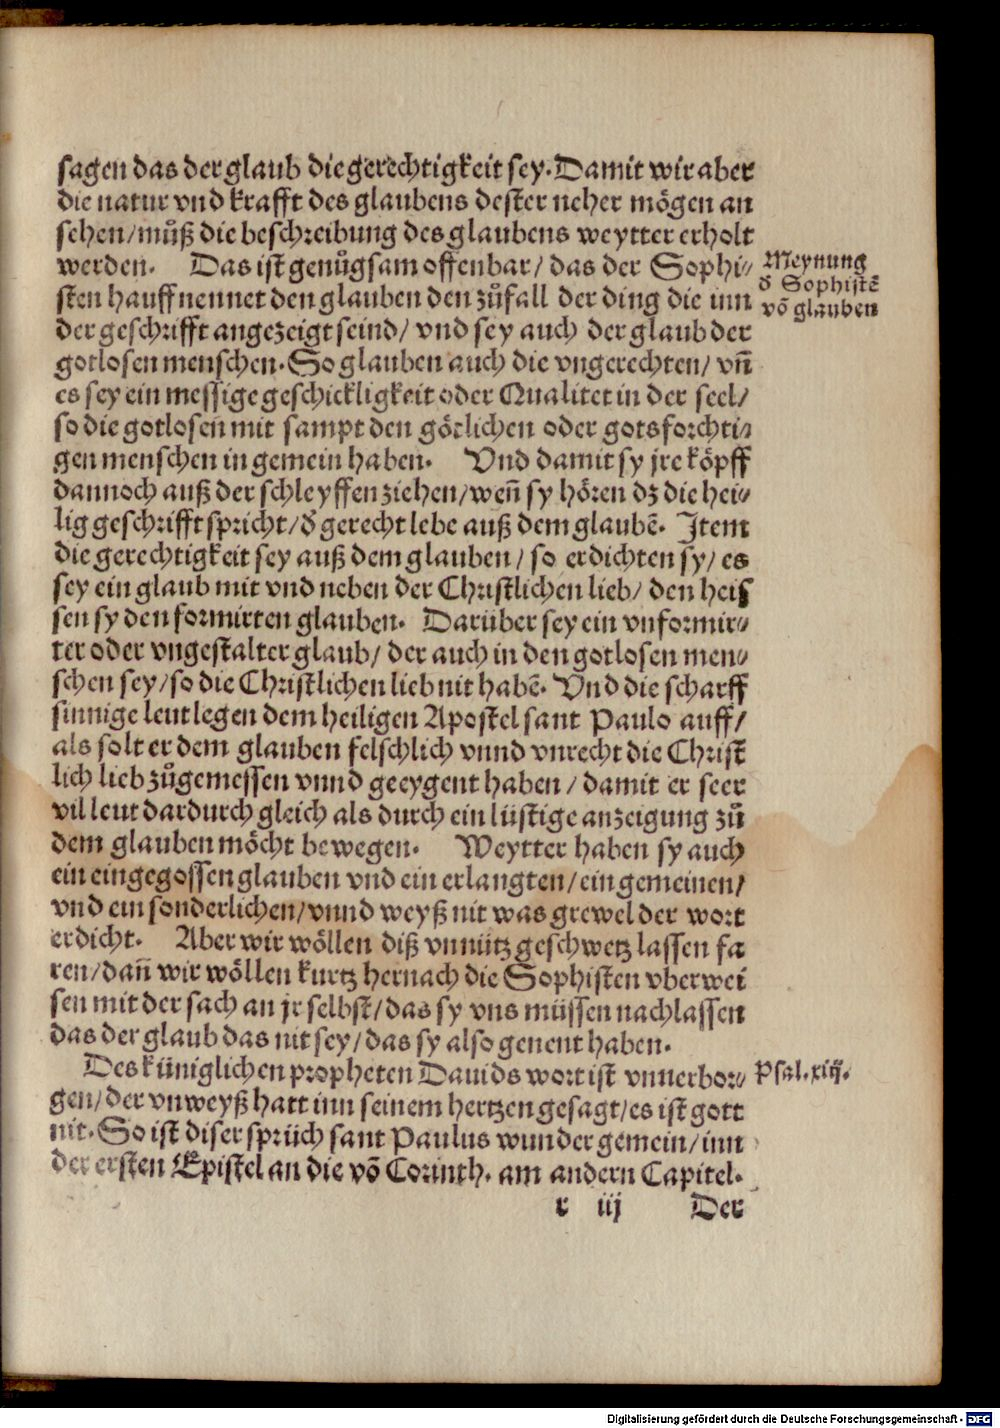 sagen das der glaub die gerechtigkeit sey. Damit wir aber
die natur vnd krafft des glaubens dester neher mögen an
sehen/ můß die beschreibung des glaubens weytter erholt
werden. Das ist genůgsam offenbar/ das der Sophi⸗
sten hauff nennet den glauben den zůfall der ding die inn
der geschrifft angezeigt seind/ vnd sey auch der glaub der
gotlosen menschen. So glauben auch die vngerechten/ vñ
es sey ein messige geschickligkeit oder Qualitet in der seel/
so die gotlosen mit sampt den götlichen oder gotsforchti⸗
gen menschen in gemein haben. Vnd damit sy jre köpff
dannoch auß der schleyffen ziehen/ weñ sy hören dz die hei⸗
lig geschrifft spricht/ d̕ gerecht lebe auß dem glaubē. Item
die gerechtigkeit sey auß dem glauben/ so erdichten sy/ es
sey ein glaub mit vnd neben der Christlichen lieb/ den heis
sen sy den formirten glauben. Darüber sey ein vnformir⸗
ter oder vngestalter glaub/ der auch in den gotlosen men⸗
schen sey/ so die Christlichen lieb nit habē. Vnd die scharff
sinnige leut legen dem heiligen Apostel sant Paulo auff/
als solt er dem glauben felschlich vnnd vnrecht die Christ
lich lieb zůgemessen vnnd geeygent haben/ damit er seer
vil leut dardurch gleich als durch ein lüstige anzeigung zů
dem glauben möcht bewegen. Weytter haben sy auch
ein eingegossen glauben vnd ein erlangten/ ein gemeinen/
vnd ein sonderlichen/ vnnd weyß nit was grewel der wort
erdicht. Aber wir wöllen diß vnnütz geschwetz lassen fa
ren/ dañ wir wöllen kurtz hernach die Sophisten vberwei
sen mit der sach an jr selbst/ das sy vns müssen nachlassen
das der glaub das nit sey/ das sy also genent haben.
Des küniglichen propheten Dauids wort ist vnuerbor⸗
gen/ der vnweyß hatt inn seinem hertzen gesagt/ es ist gott
nit. So ist diser sprüch sant Paulus wunder gemein/ inn
der ersten Epistel an die võ Corinth. am andern Capitel.
r iij Der
Meynung
d̕ Sophistē
võ glauben
Psal. xiij.
Digitalisierung gefördert durch die Deutsche Forschungsgemeinschaft - DFG